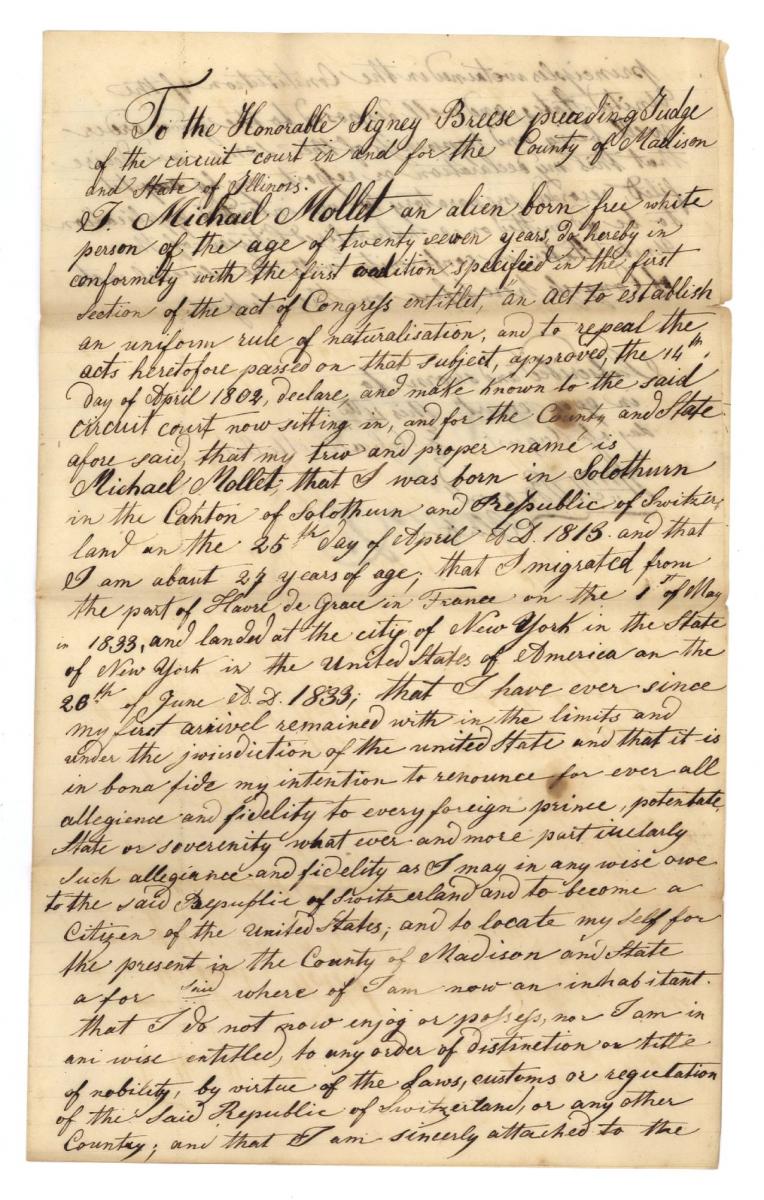 To the Honorable Signey Breese preceding Judge
of the circuit court in and for the County of Madison
and State of Illinois.
I. Michael Mollet an alien born free white
person of the age of twenty seven years, do hereby in
conformity with the first condition, specified in the first
section of the act of Congress entitlet, "an act to establish
an uniform rule of naturalisation, and to repeal the
acts heretofore passed on that subject, approved, the 14th
day of April 1802, declare, and make known to the said
circuit court now sitting in, and for the County and State
afore said, that my triw and proper name is
Michael Mollet, that I was born in Solothurn
in the Canton of Solothurn and Republic of Switzer,
land on the 25th day of April A.D. 1813. and that
I am about 27 years of age; that I migrated from
the part of Havre de Grace in France on the 1st of May
in 1833, and landed at the city of New York in the State
of New York in the United States of America on the
20th of June A.D. 1833; that I have ever since
my first arrivel remained with in the limits and
under the jwrisdiction of the united State and that it is
in bona fide my intention to renounce for ever all
allegience and fidelity to every foreign prince, potentate,
State or soverenity what ever and more part icuclarly
such allegiance and fidelity as I may in any wise owe
to the said Republic of Switzerland and to become a
Citizen of the United States; and to locate my self for
the present in the County of Madison and State
a for said where of I am now an inhabitant.
that I do not now enjoy or possess, nor I am in
ani wise entitled, to any order of distinction or title
of nobility, by virtue of the Laws, customs or regulation
of the said Republic of Switzerland, or any other
Country; and that I am sincerly attached to the